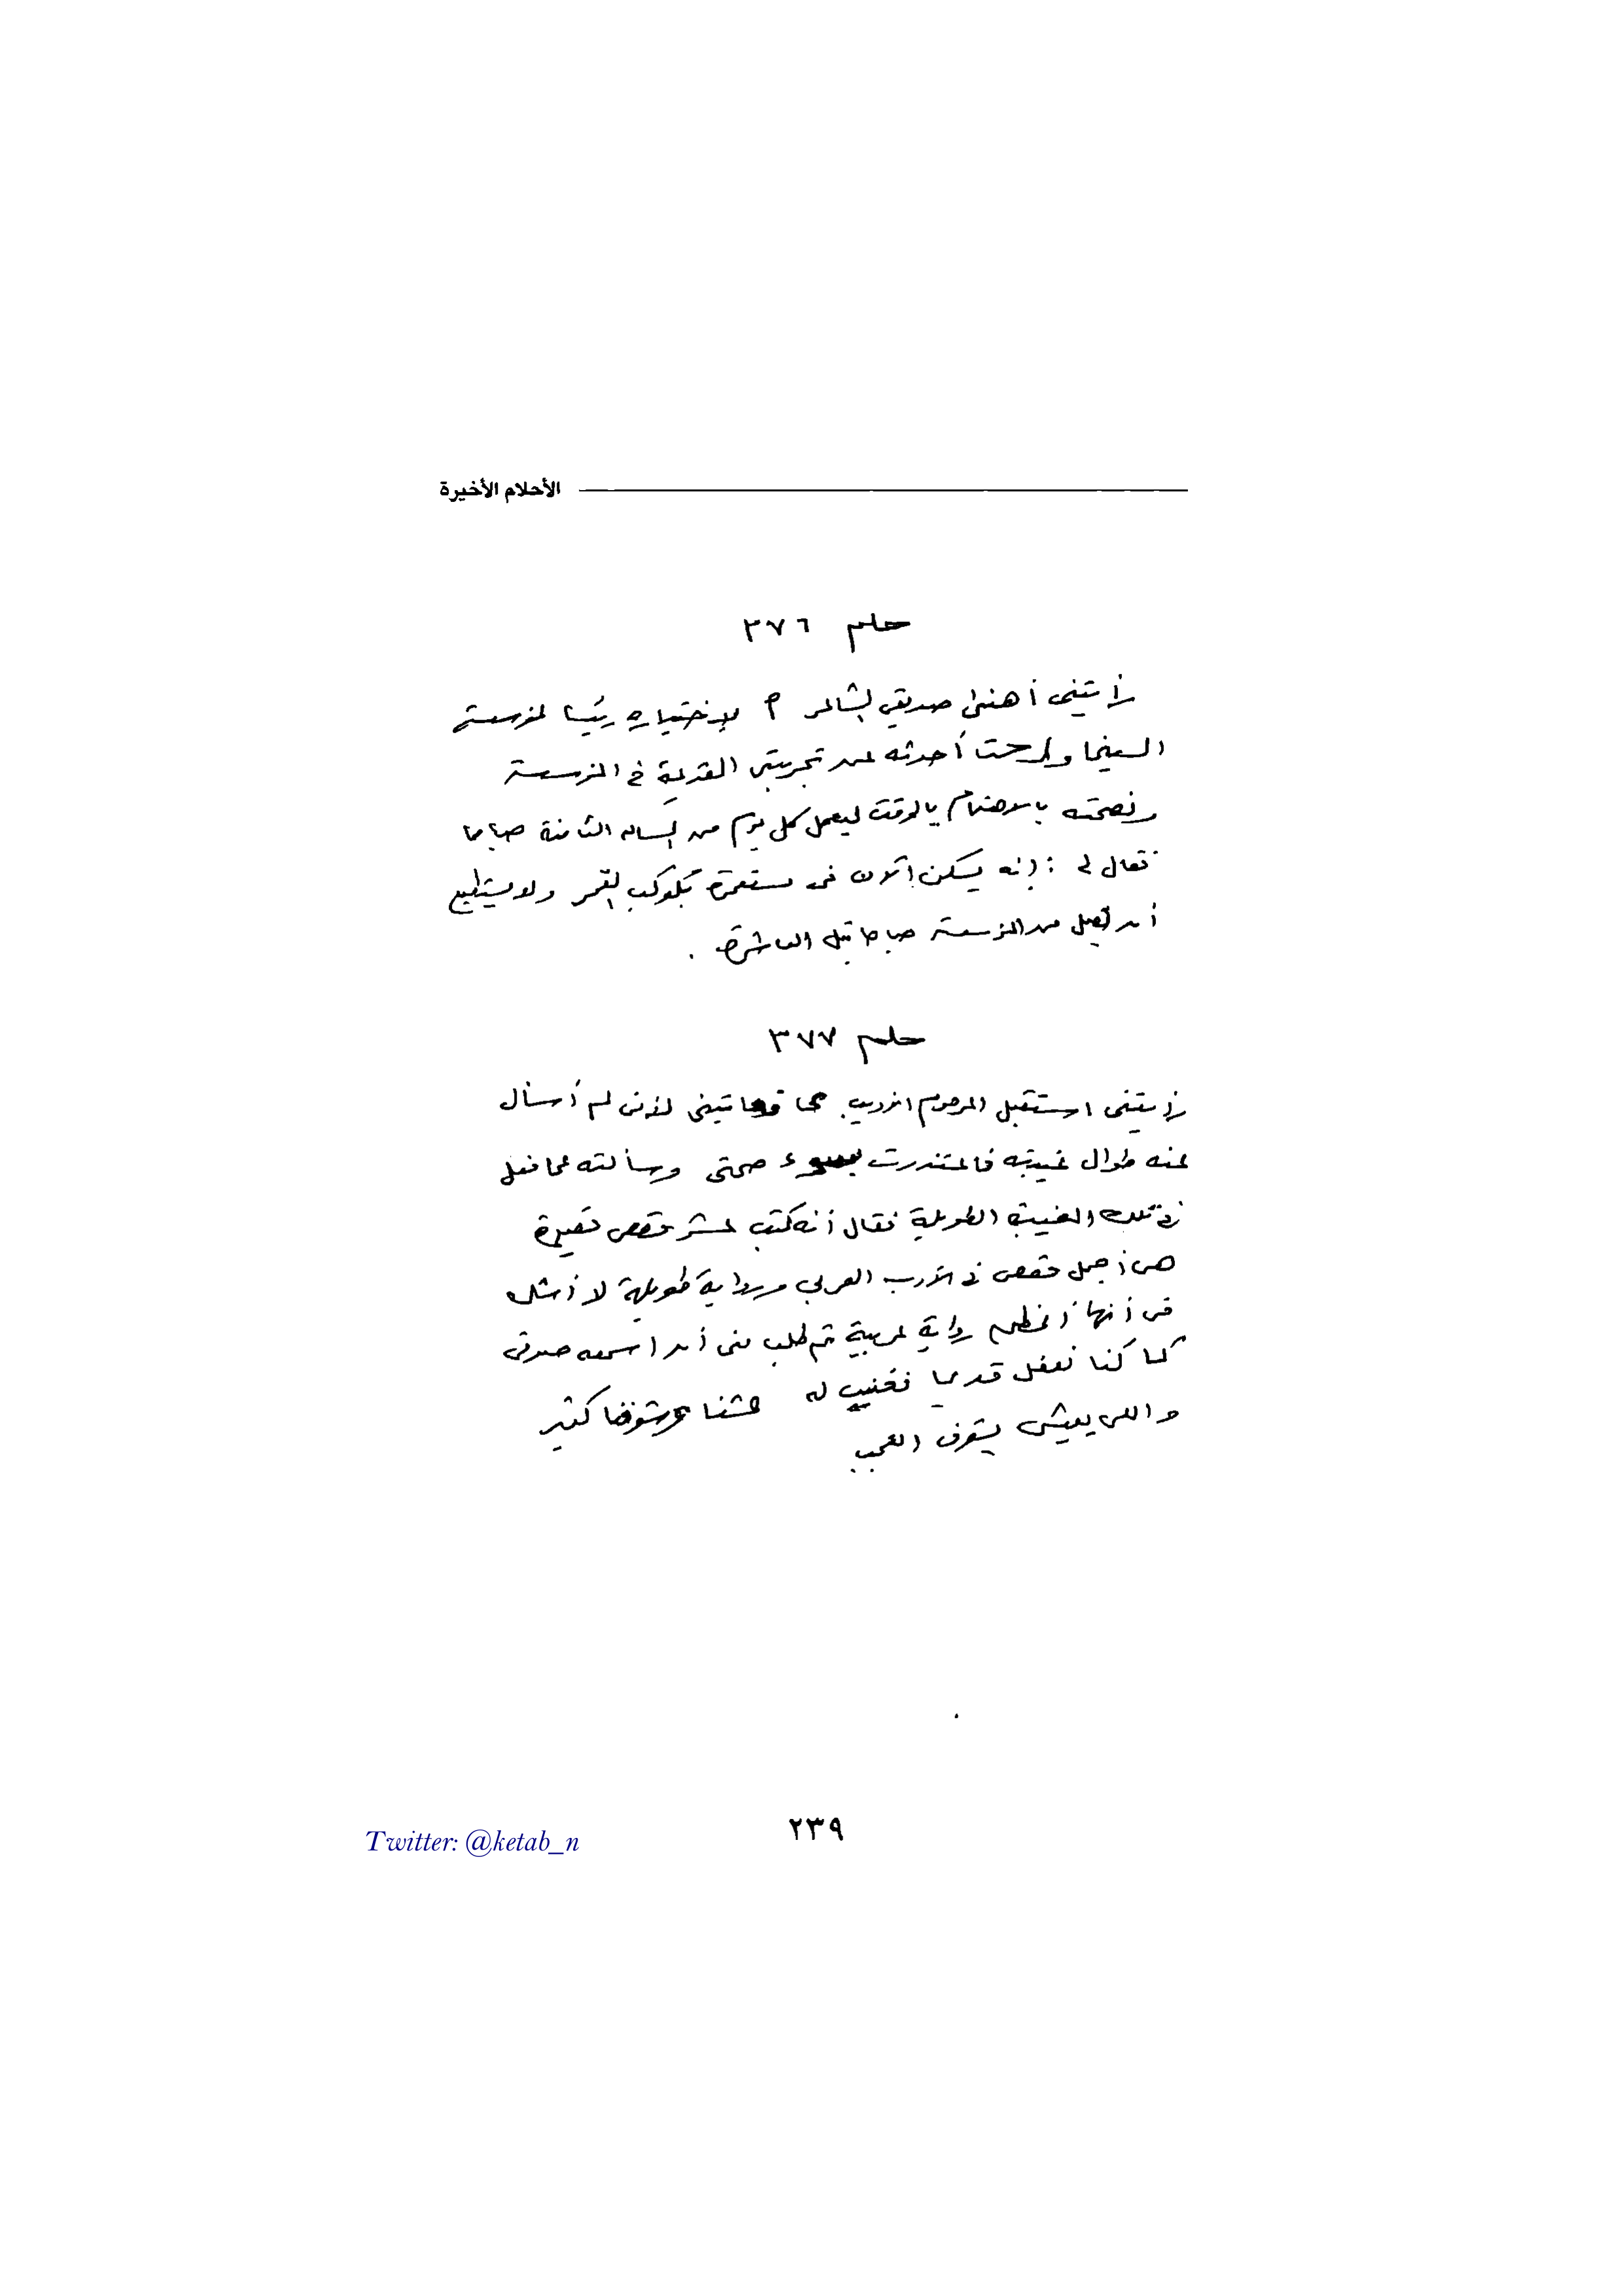 الأحلام الأخيرة
حلم ٣٧٦
رأيتنى أهنئ صديقى الشاعر م لإختياره رئيسا لمؤسسة
السينما ورحت أحدثه عن تجربتى القديمة فى المؤسسة
ونصحته بالاهتمام بالوقت ليعمل كل يوم من الساعة الثامنة صباحا
فقال لى : إنه يسكن الآن فى مستعمرة بكوكب القمر ولا يستطيع
أن يصل المؤسسة صباحا قبل العاشرة .
حلم ٣٧٧
رأيتنى استقبل المرحوم الأديب فعاتبنى لأنى لم أسأل
عنه طوال غيبته فاعتذرت بسوء صحتى وسألته عما فعل
فى تلك الغيبة الطويلة فقال أنه كتب عشر قصص قصيرة
هى أجمل قصص فى الأدب العربى ورواية طويلة لا أشك
فى أنها أعظم رواية عربية ثم طلب منى أن اسمعه صوتى
كما كنا نفعل قديما فغنيت له عشنا وشوفنا كتير
واللى يعيش يشوف العجب
٢٣٩
Twitter: @ketab_n